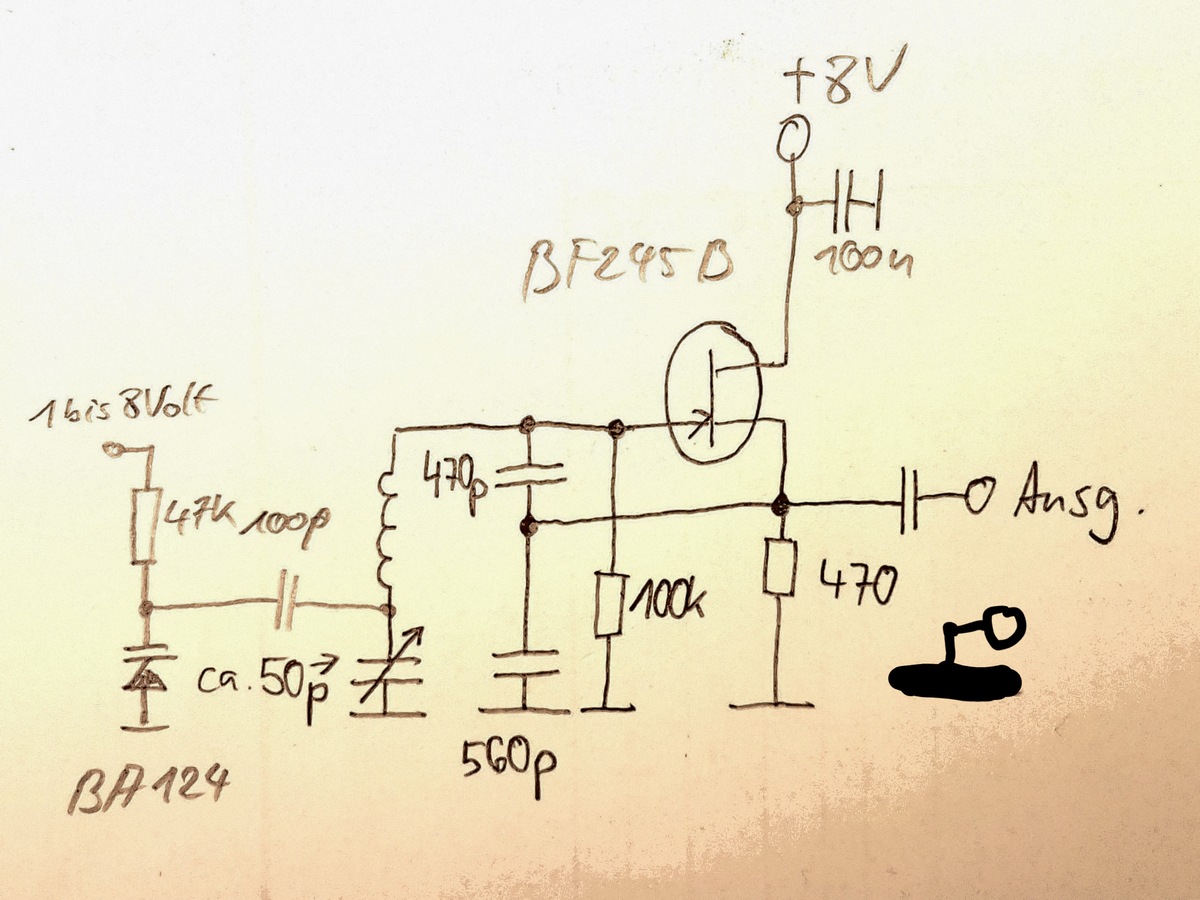 +8V
100n
BF245B
1 bis 8Volt
47k
100p
470p
Ausg.
100k
470
ca. 50p
560p
BA124